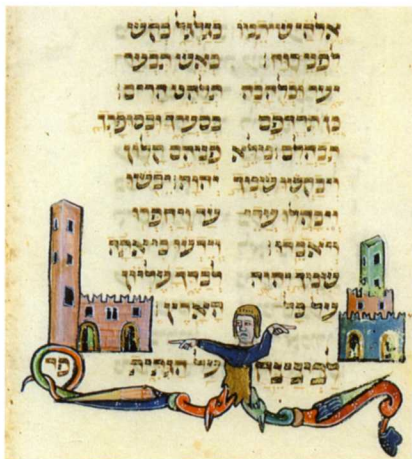 אלהי שיתמו כגלגל כקש
לפני רוח: כאש תבער
יער וכלהבה תלהט הרים:
כן תרדפם בסערך ובסופתך
תבהלם: מלא פניהם קלון
ויבקשו שמך יהוה: יבשו
ויבהלו עדי עד ויחפרו
ויאבדו: וידעו כי אתה
שמך יהוה לבדך עליון
על כל הארץ:
למנצח על הגתית